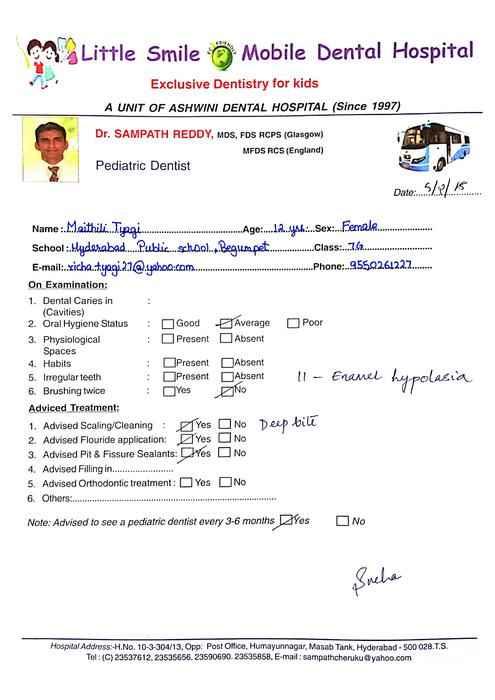 Little Smile Mobile Dental Hospital
Exclusive Dentistry for kids
A UNIT OF ASHWINI DENTAL HOSPITAL (Since 1997)
Dr. SAMPATH REDDY, MDS, FDS RCPS (Glasgow)
MFDS RCS (England)
Pediatric Dentist
Date: 5/8/15
Name: Maithili Tyagi Age: 12 yrs. Sex: Female
School: Hyderabad Public school, Begumpet Class: 7G
E-mail: richa.tyagi27@yahoo.com Phone: 9550261227
On Examination:
1. Dental Caries in :
(Cavities)
2. Oral Hygiene Status : Good Average Poor
3. Physiological : Present Absent
Spaces
4. Habits : Present Absent
5. Irregular teeth : Present Absent 11 - Enamel hypolasia
6. Brushing twice : Yes No
Adviced Treatment:
1. Advised Scaling/Cleaning : Yes No Deep bite
2. Advised Flouride application: Yes No
3. Advised Pit & Fissure Sealants: Yes No
4. Advised Filling in
5. Advised Orthodontic treatment : Yes No
6. Others:
Note: Advised to see a pediatric dentist every 3-6 months Yes No
Sneha
Hospital Address:-H.No. 10-3-304/13, Opp. Post Office, Humayunnagar, Masab Tank, Hyderabad - 500 028.T.S.
Tel : (C) 23537612, 23535656, 23590690. 23535858, E-mail : sampathcheruku@yahoo.com